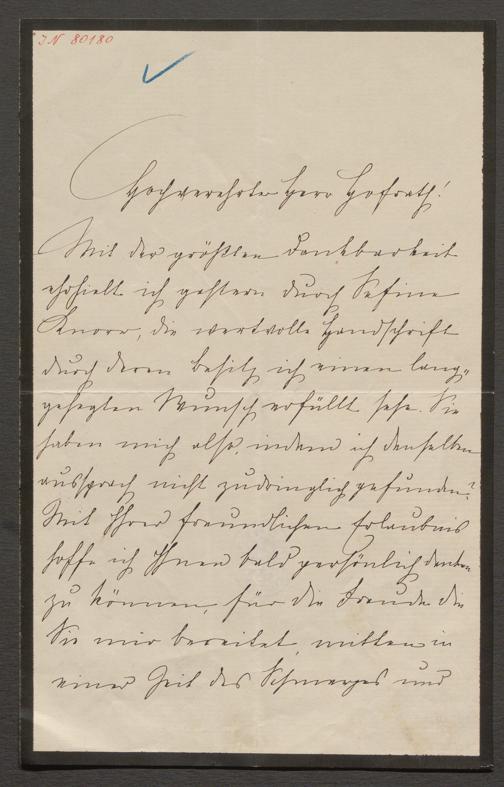 IN 80180
Hochverehrter Herr Hofrath!
Mit der größten Dankbarkeit
erhielt ich gestern durch Sefine
Knorr, die wertvolle Handschrift
durch deren Besitz ich einen lang-
gehegten Wunsch erfüllt sehe. Sie
haben mich also, indem ich denselben
aussprach nicht zudringlich gefunden?
Mit Ihrer freundlichen Erlaubnis
hoffe ich Ihnen bald persönlich danken
zu können, für die Freude die
Sie mir bereitet, mitten in
einer Zeit des Schmerzes und